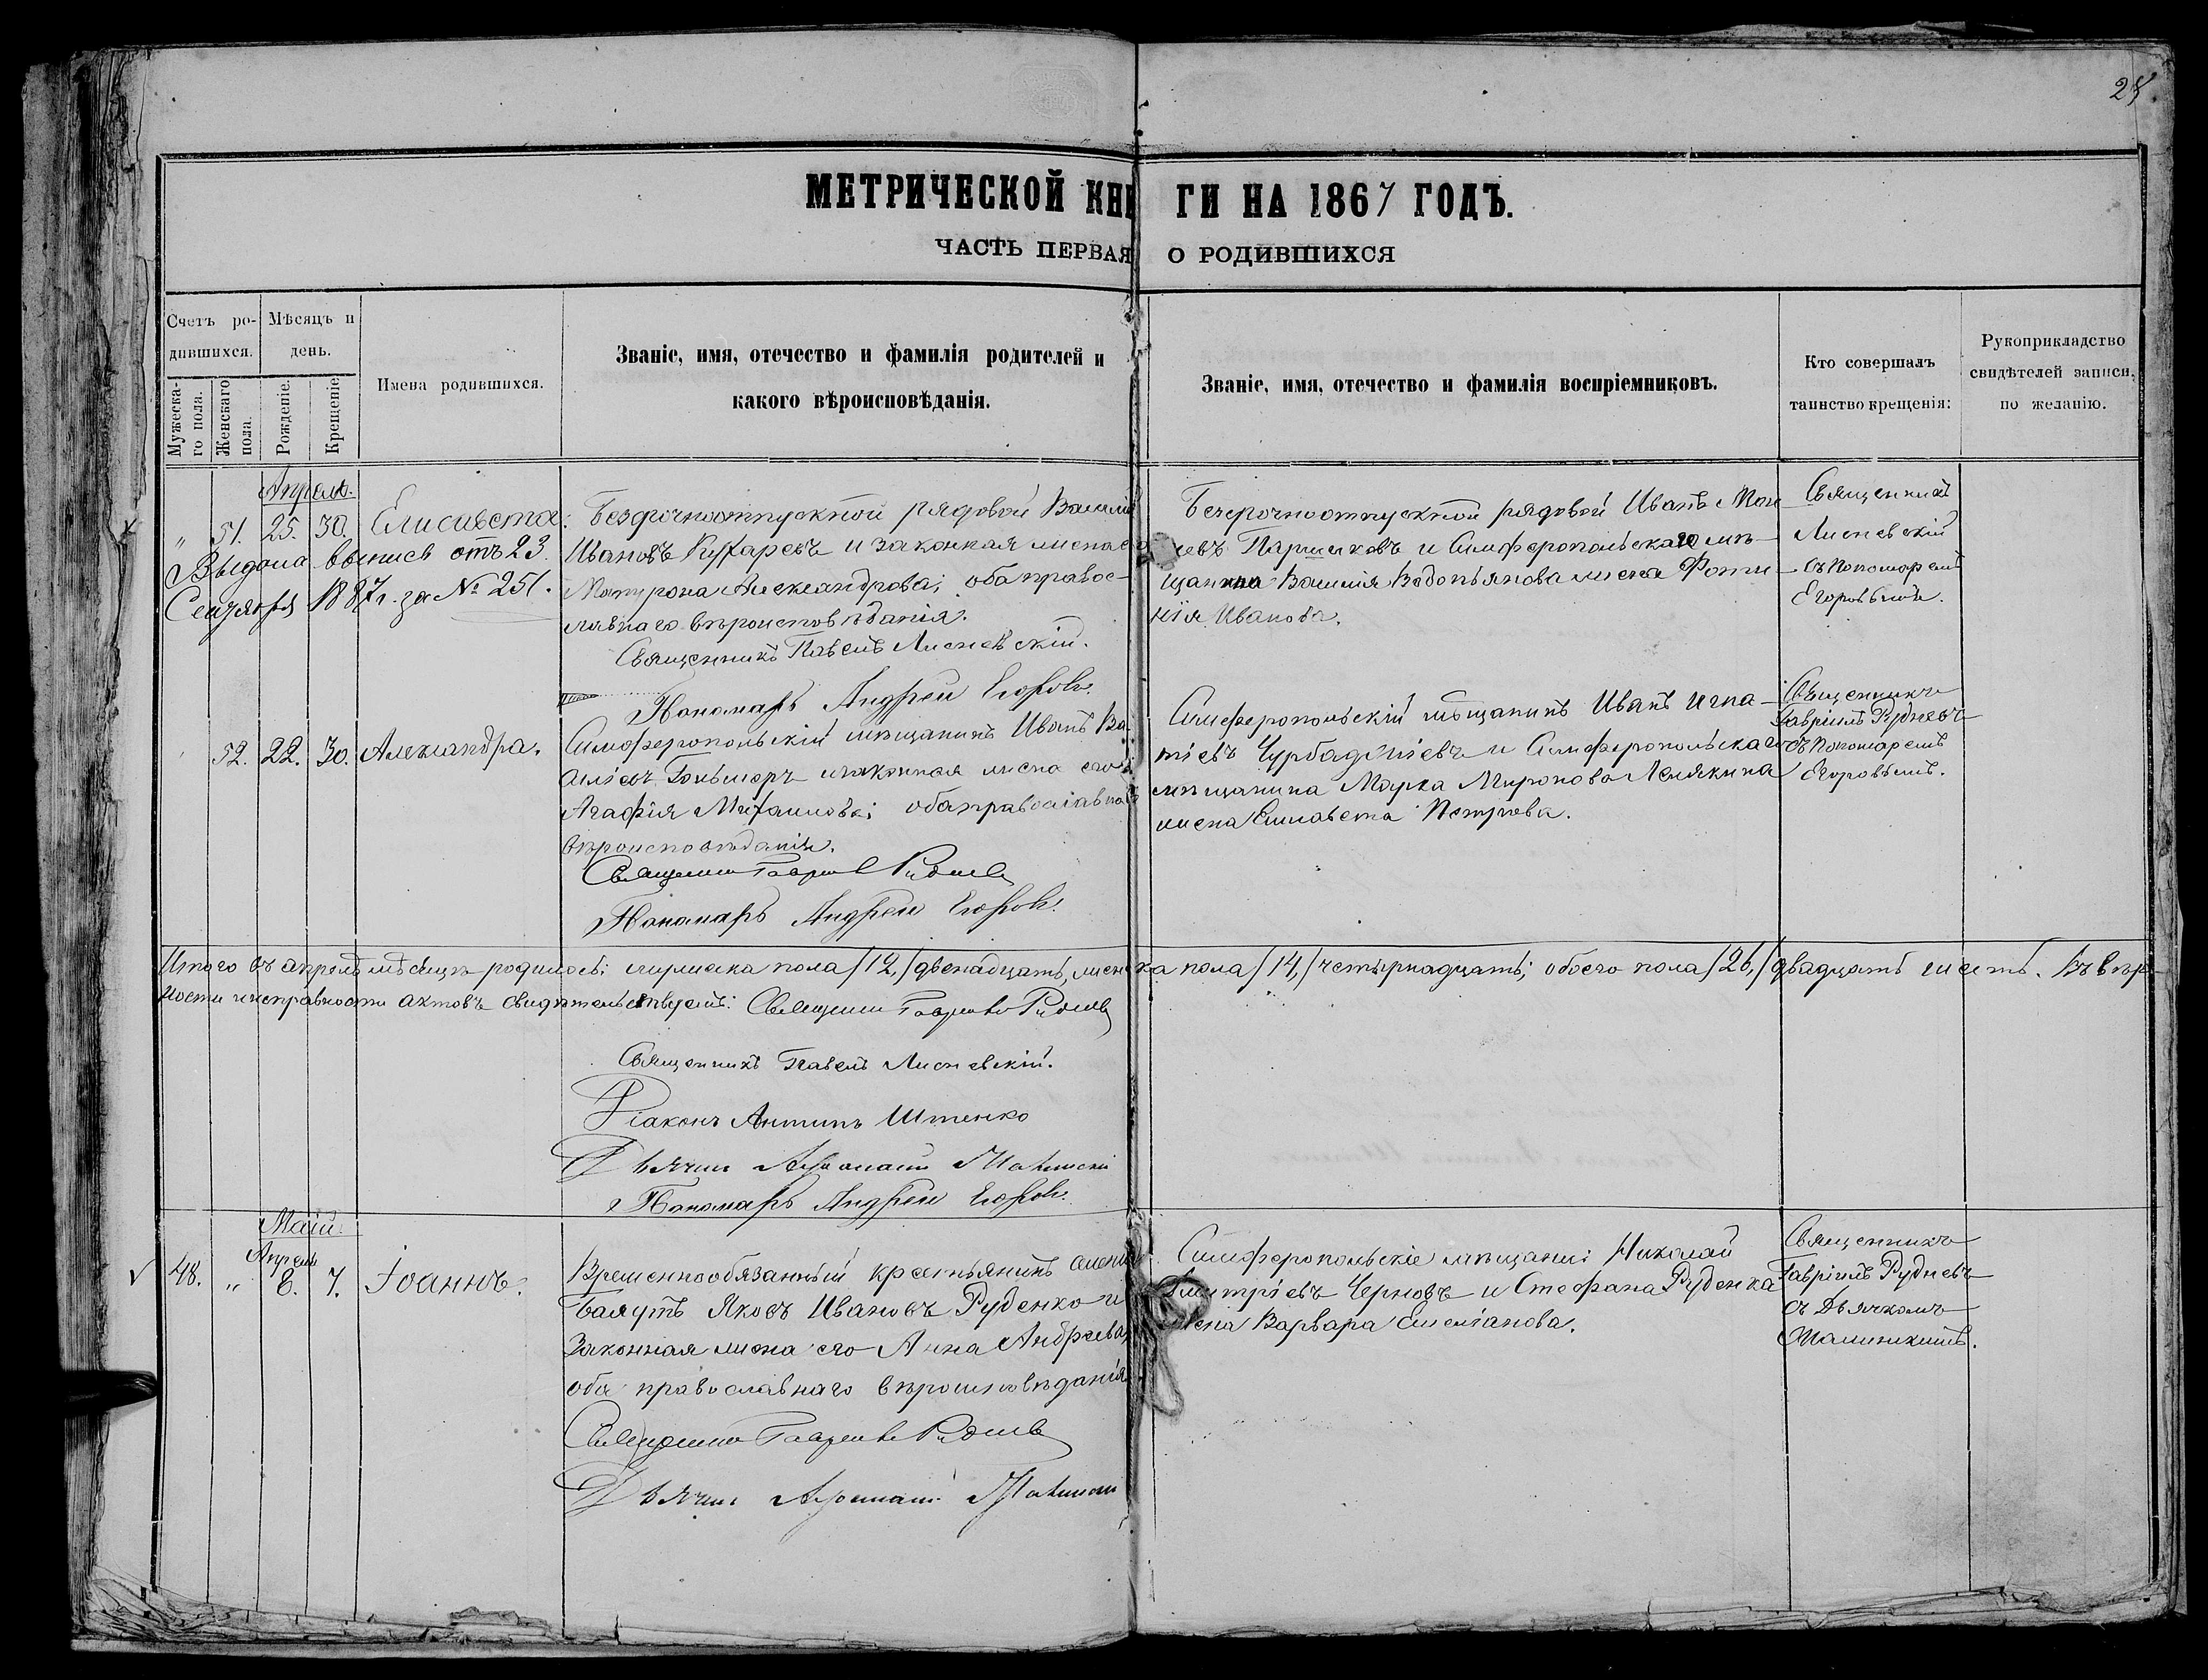 28
МЕТРИЧЕСКОЙ КНИГИ НА 1867 ГОДЪ.
ЧАСТЬ ПЕРВАЯ О РОДИВШИХСЯ
Счетъ ро-
дившихся.
Мѣсяцъ и
день.
Мужеска-
го пола.
Женскаго
пола.
Рожденіе.
Крещеніе.
Имена родившихся.
Званіе, имя, отечество и фамилія родителей и
какого вѣроисповѣданія.
Званіе, имя, отечество и фамилія воспріемниковъ.
Кто совершалъ
таинство крещенія:
Рукоприкладство
свидѣтелей записи,
по желанію.
Апрель.
„ 51. 25. 30. Елисавета:
Выдана выпись отъ 23
Сентября 1887 г. за № 251.
Безсрочноотпускной рядовой Василій
Ивановъ и законная жена его
Матрона Александрова; оба правос-
лавнаго вѣроисповѣданія.
Священникъ Павелъ Лисневскій.
Пономарь Андрей Егоровъ.
Безсрочноотпускной рядовой Иванъ
Паршиковъ и Симферопольскаго мѣ-
щанина Василія Водопьянова жена Фоти-
нія Иванова.
Священникъ
Лисневскій
съ Пономаремъ
Егоровымъ.
52. 22. 30. Александра.
Симферопольскій мѣщанинъ Иванъ Ва-
силіевъ и законная жена его
Агафія Михаилова; оба православнаго
вѣроисповѣданія.
Священникъ Гавріилъ Рудневъ
Пономарь Андрей Егоровъ.
Симферопольскій мѣщанинъ Иванъ Игна-
тіевъ Чурбаджіевъ и Симферопольскаго
мѣщанина Марка Миронова Лемякина
жена Елисавета Петрова.
Священникъ
Гавріилъ Рудневъ
съ Пономаремъ
Егоровымъ.
Итого въ апрелѣ мѣсяцѣ родилось: мужеска пола /12,/ двенадцать, женска пола /14,/ четырнадцать; обоего пола /26,/ двадцать шесть. Въ вѣр-
ности и исправности актовъ свидѣтельствуемъ: Священникъ Гавріилъ Рудневъ
Священникъ Павелъ Лисневскій.
Діаконъ Антипъ Штенко
Дьячекъ
Пономарь Андрей Егоровъ.
Маій.
Апрель
48. „ 8. 7. Іоаннъ.
Временнообязанный крестьянинъ имени
Яковъ Ивановъ Руденко и
законная жена его Анна Андреева,
оба православнаго вѣроисповѣданія
Священникъ Гавріилъ Рудневъ
Дьячекъ
Симферопольскіе мѣщане: Николай
Дмитріевъ Черновъ и Стефана Руденка
жена Варвара Емеліанова.
Священникъ
Гавріилъ Рудневъ
съ Дьячкомъ